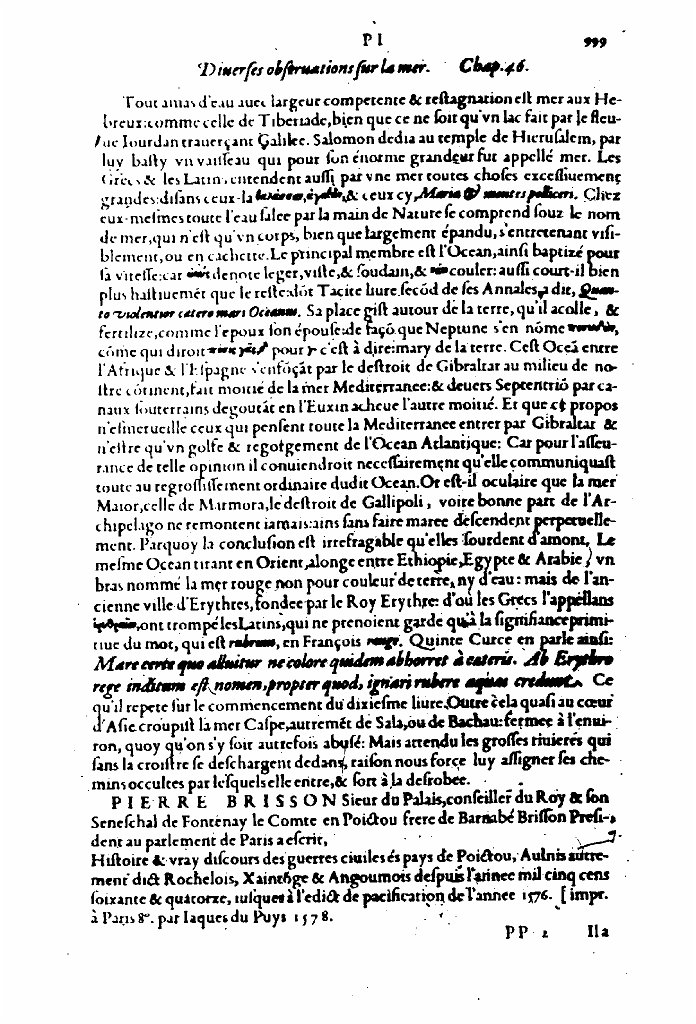 PI 999
Diuerses obseruations sur la mer. Chap. 46.
Tout amas d'eau auec largeur competente & restagnation est mer aux He-
breux: comme celle de Tiberiade, bien que ce ne soit qu'vn lac fait par le fleu-
ue Iourdan trauerçant Galilee. Salomon dedia au temple de Hierusalem, par
luy basty vn vaisseau qui pour son énorme grandeur fut appellé mer. Les
Grecs & les Latins entendent aussi par vne mer toutes choses excessiuement
grandes: disans ceux-la & ceux cy, Maria & montes polliceri. Chez
eux-mesmes toute l'eau salee par la main de Nature se comprend souz le nom
de mer, qui n'est qu'vn corps, bien que largement épandu, s'entretenant visi-
blement, ou en cachette. Le principal membre est l'Ocean, ainsi baptizé pour
sa vitesse: car denote leger, viste, & soudain, & couler: aussi court-il bien
plus hastiuemét que le reste: dót Tacite liure secód de ses Annales, a dit, Quan-
to violentior cetero mari Oceanus. Sa place gist autour de la terre, qu'il acolle, &
fertilize, comme l'epoux son épouse: de façó que Neptune s'en nóme
cóme qui diroit pour c'est à dire: mary de la terre. Cest Oceā entre
l'Afrique & l'Espagne s'enfóçāt par le destroit de Gibraltar au milieu de no-
stre cótinent, fait moitié de la mer Mediterranee: & deuers Septentrió par ca-
naux souterrains degoutāt en l'Euxin acheue l'autre moitié. Et que ce propos
n'esmerueille ceux qui pensent toute la Mediterranee entrer par Gibraltar &
n'estre qu'vn golfe & regorgement de l'Ocean Atlantique: Car pour l'asseu-
rance de telle opinion il conuiendroit necessairement qu'elle communiquast
toute au regrossissement ordinaire dudit Ocean. Or est-il oculaire que la mer
Maior, celle de Marmora, le destroit de Gallipoli, voire bonne part de l'Ar-
chipelago ne remontent iamais: ains sans faire maree descendent perpetuelle-
ment. Parquoy la conclusion est irrefragable qu'elles sourdent d'amont. Le
mesme Ocean tirant en Orient, alonge entre Ethiopie, Egypte & Arabie, vn
bras nommé la mer rouge non pour couleur de terre, ny d'eau: mais de l'an-
cienne ville d'Erythres, fondee par le Roy Erythre: d'où les Grecs l'appellans
ont trompé les Latins, qui ne prenoient garde qu'à la signifiance primi-
tiue du mot, qui est rubrum, en François rouge. Quinte Curce en parle ainsi:
Mare certe quo alluitur ne colore quidem abhorret à cæteris. Ab Erythro
rege inditum est nomen, propter quod, ignari rubere aquas credunt. Ce
qu'il repete sur le commencement du dixiesme liure. Outre cela quasi au cœur
d'Asie croupist la mer Caspe, autremēt de Sala, ou de Bachau: fermee à l'enui-
ron, quoy qu'on s'y soit autrefois abusé: Mais attendu les grosses riuieres qui
sans la croistre se deschargent dedans, raison nous force luy assigner ses che-
mins occultes par lesquels elle entre, & sort à la desrobee.
PIERRE BRISSON Sieur du Palais, conseiller du Roy & son
Seneschal de Fontenay le Comte en Poictou frere de Barnabé Brisson Presi-
dent au parlement de Paris a escrit,
Histoire & vray discours des guerres ciuiles és pays de Poictou, Aulnis autre-
ment dict Rochelois, Xainctōge & Angoumois despuis l'annee mil cinq cens
soixante & quatorze, iusques à l'edict de pacification de l'annee 1576. [impr.
à Paris 8°. par Iaques du Puys 1578.
PP 2 Ila